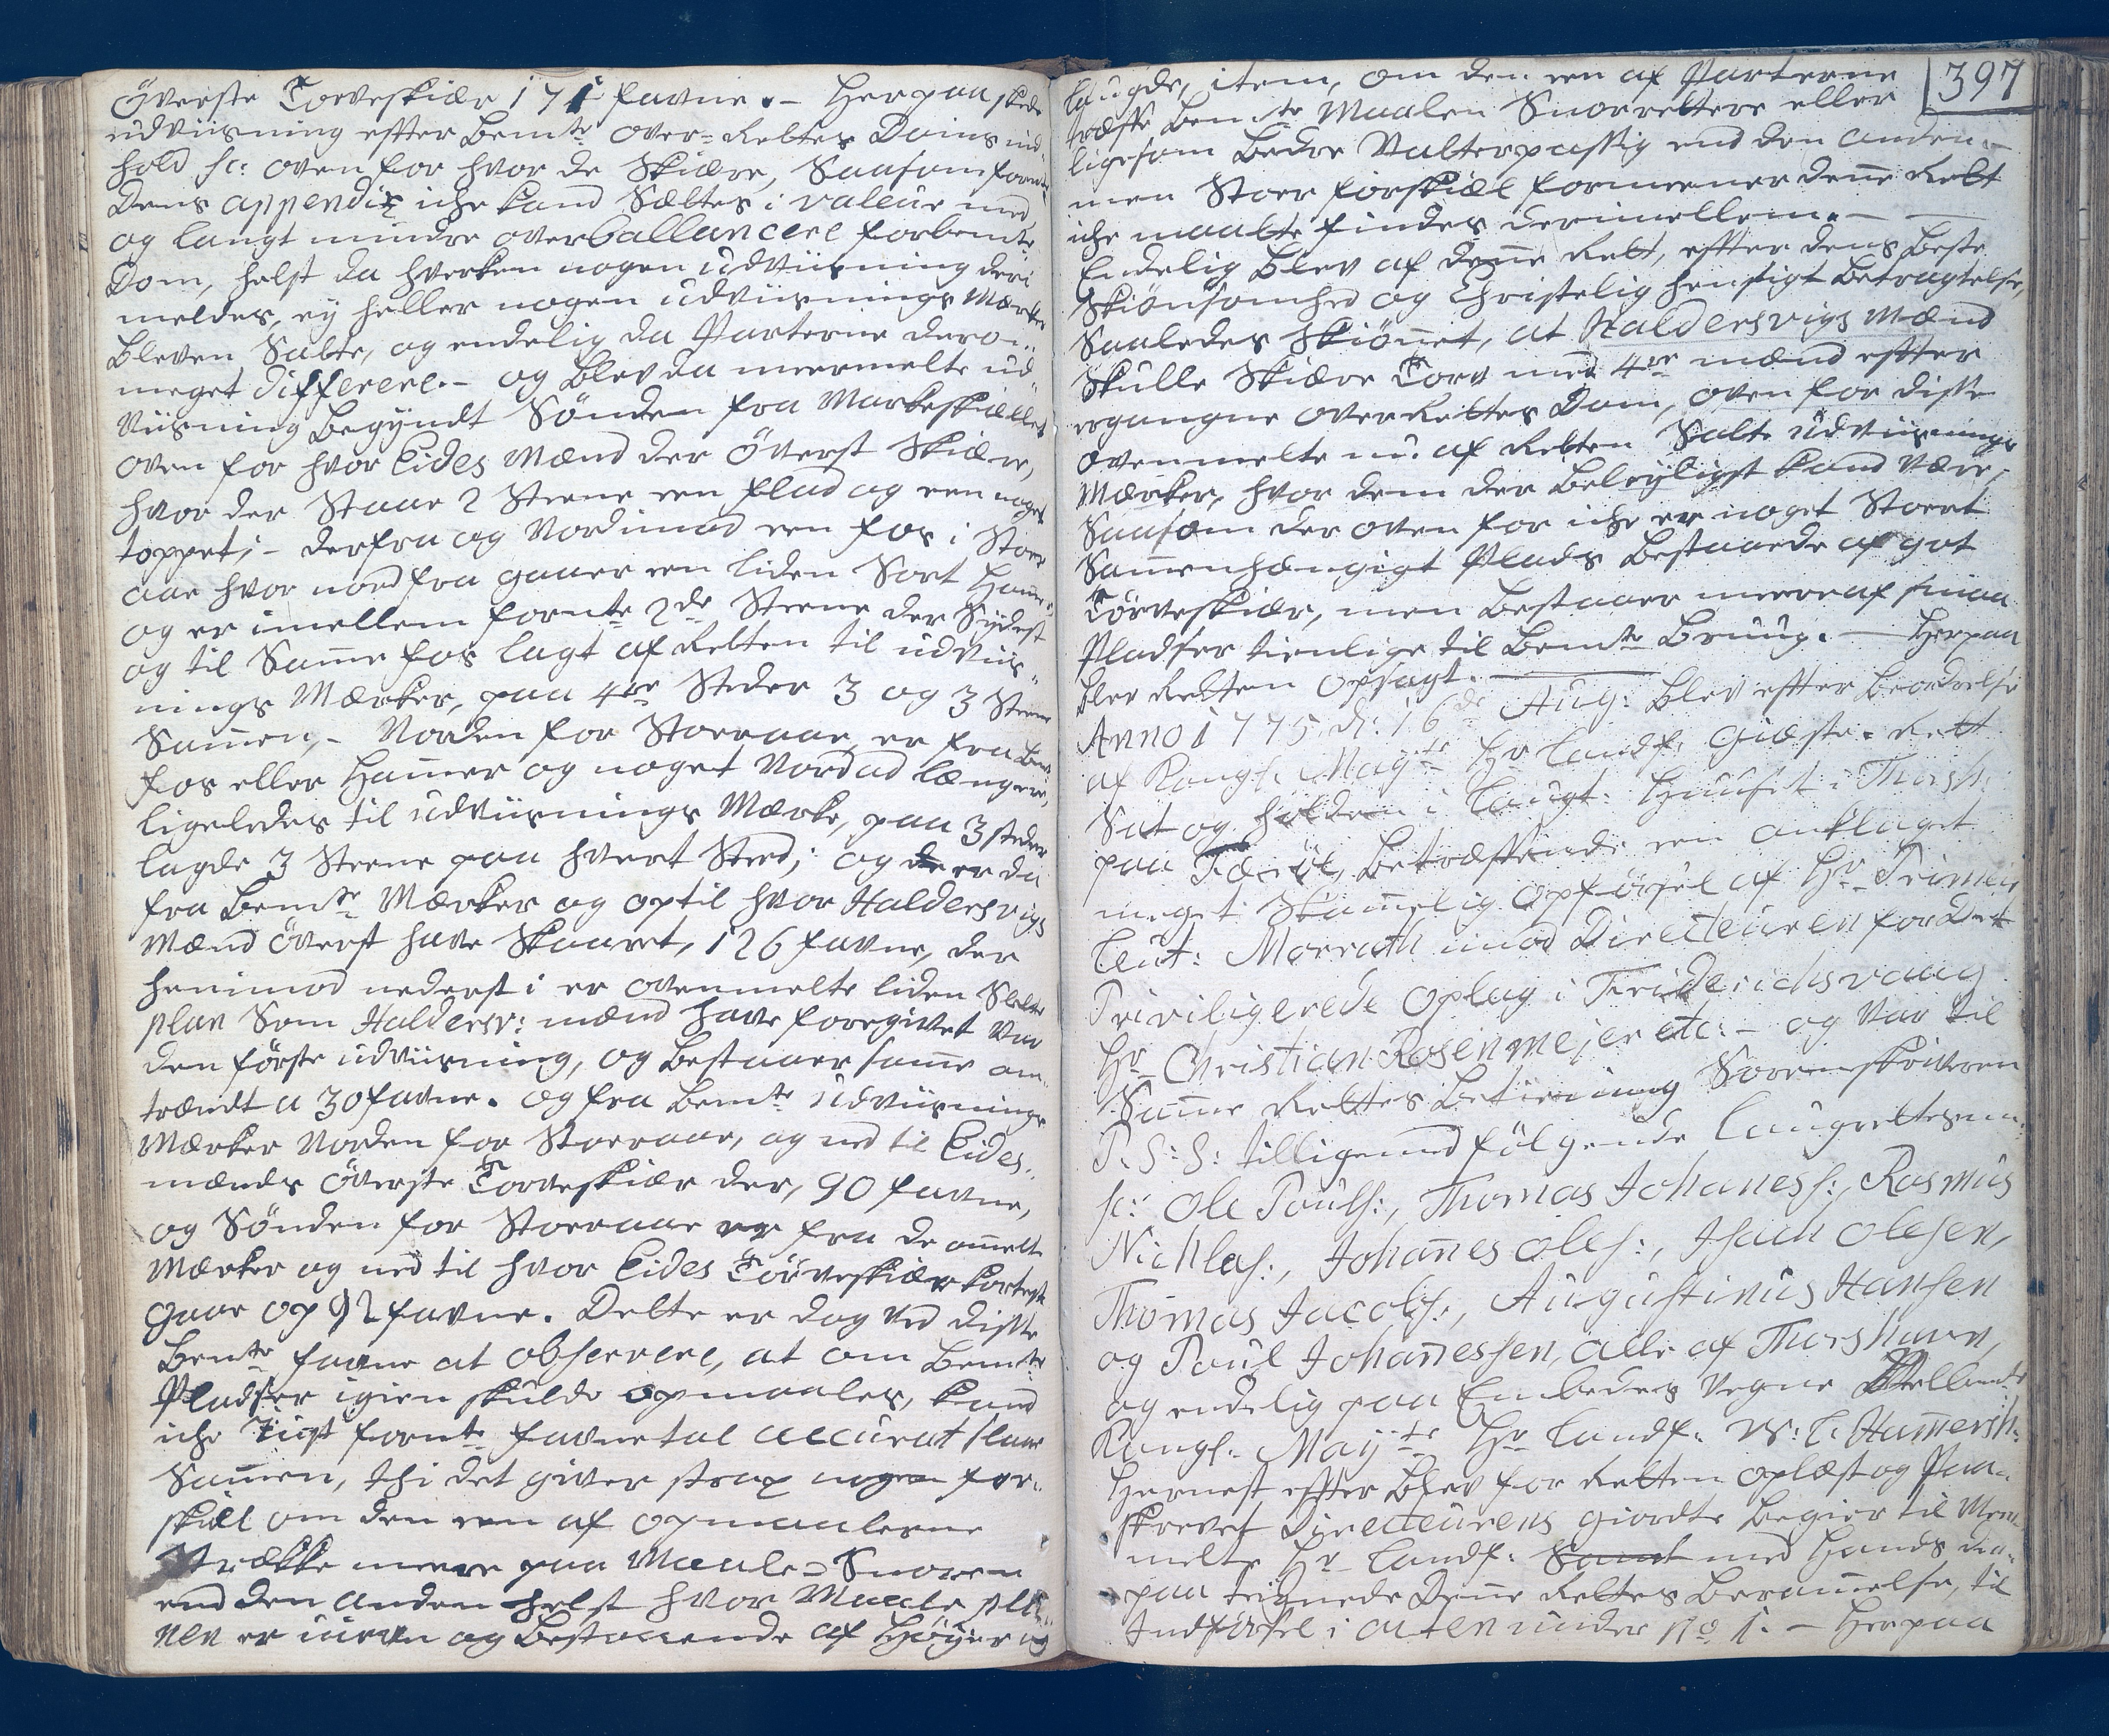 Øverste Torveskiær 171 favne. – Herpaa skede
udviisning efter bemte Over-Rettes Doms ind
hold sc: oven for hvor de skiære, saasom fornte
Doms appendix iche kand sættes i valeur med
og langt mindre overballancere forbemte
Dom, helst da hverken nogen udviisning deri
meldes, ej heller nogen udviisnings Mærker
bleven satte, og endelig da Parterne derom
meget differere. – og blev da meermelte ud
viisning begyndt Sønden fra Markeskiellet
oven for hvor Eides Mænd der øverst skiære,
hvor der staar 2 Steene een flad og een noget
toppet; – derfra og Nordimod een fos i Stor
aae hvor nordfra gaaer een liden sort Ham̄er,
og er imellem fornte 2de Steene der sydest
og til sam̄e fos lagt af Retten til udviis
nings Mærker, paa 4re Steder 3 og 3 Steene
sam̄en, – Norden for Storaae er fra bem:
fos eller Ham̄er og noget Nordud længere,
ligeledes til udviisnings Mærke, paa 3 steder
lagde 3 Steene paa hvert Sted; og er da
fra bemte Mærker og optil hvor Haldersvigs
Mænd øverst have skaaret, 126 favne, der
henimod nederst i er ovenmelte liden Slette
plan som Haldersv: mænd have foregivet var
den første udviisning, og bestaaer sam̄e om
trændt a 30 favne. og fra bemte udviisnings
Mærker Norden for Storaae, og ned til Eides
mænds øverste Torveskiær der, 90 favne,
og Sønden for Storaae er fra de om̄elte
Mærker og ned til hvor Eides Tørveskiær kortest
gaar op 92 favne. Dette er dog ved disse
bemte favne at observere, at om bemte
Pladser igien skulde opmaales, kand
iche just fornte favnetal accurat slaae
sam̄en, thi det giver strax nogen for-
skiæl om den een af opmaalerne
trække meere paa Maale-Snoren
end den anden helst hvor Maale pla-
nen er ujevn og bestaaende af Høyer og
397
laugde, item, om den een af Parterne
træffe bemte Maalen Snorrettere eller
ligesom bedre Valterpassig end den anden. –
men stoer forskiæl formeener den̄e Rett
iche maatte findes derimellem. –
Endelig blev af den̄e Rett, efter dens beste
skiønsomhed og Christelig hensigt betragtelse,
saaledes skiøn̄et, at Haldersvigs mænd
skulle skiære Torv med 4re mænd efter
ergangne OverRettes Dom, oven for disse
ovenmelte nu af Retten satte udviisnings
Mærker, hvor dem der beleyligst kand være,
saasom der oven for iche er noget stoert
sam̄enhængigt Plads bestaaende af got
Tørveskiær, men bestaaer meere af smaa
Pladser tienlige til bemte Brug. – Herpaa
blev Retten opsagt. –
Anno 1775 d: 16de Aug: blev efter beordrelse
af Kongl: Mayts Hr Landf: Giæste-Rett
sat og holden i Laugt: Huuset i Thorsh:
paa Færøe, betræffende een anklaget
meget skam̄elig opførsel af Hr Primier
Leut: Morrath imod Directeuren for det
Priviligerede Oplag i Friderichsvaag
Hr Christian Rosenmejer etc: – og var til
sam̄e Rettes betiening Sorenskriveren
P. S: S: tilligemed følgende Laugrettesm:
sc: Ole Pouls:, Thomas Johaness:, Rasmus
Nichlas:, Johan̄es Oles:, Isach Olesen,
Thomas Jacobs:, Augustinus Hansen
og Poul Johan̄essen, alle af Thorshavn,
og endelig paa Embedes Vegne
Kongl: Mayts Hr Landf: W: L: Ham̄ersh:
Hernest efter blev for Retten oplæst og Paa-
skrevet Directeurens giordte begier til Meer
melte Hr Landf: med Hands der-
paa teignede den̄e Rettes beram̄else, til
Indførsel i acten under No 1. – Herpaa